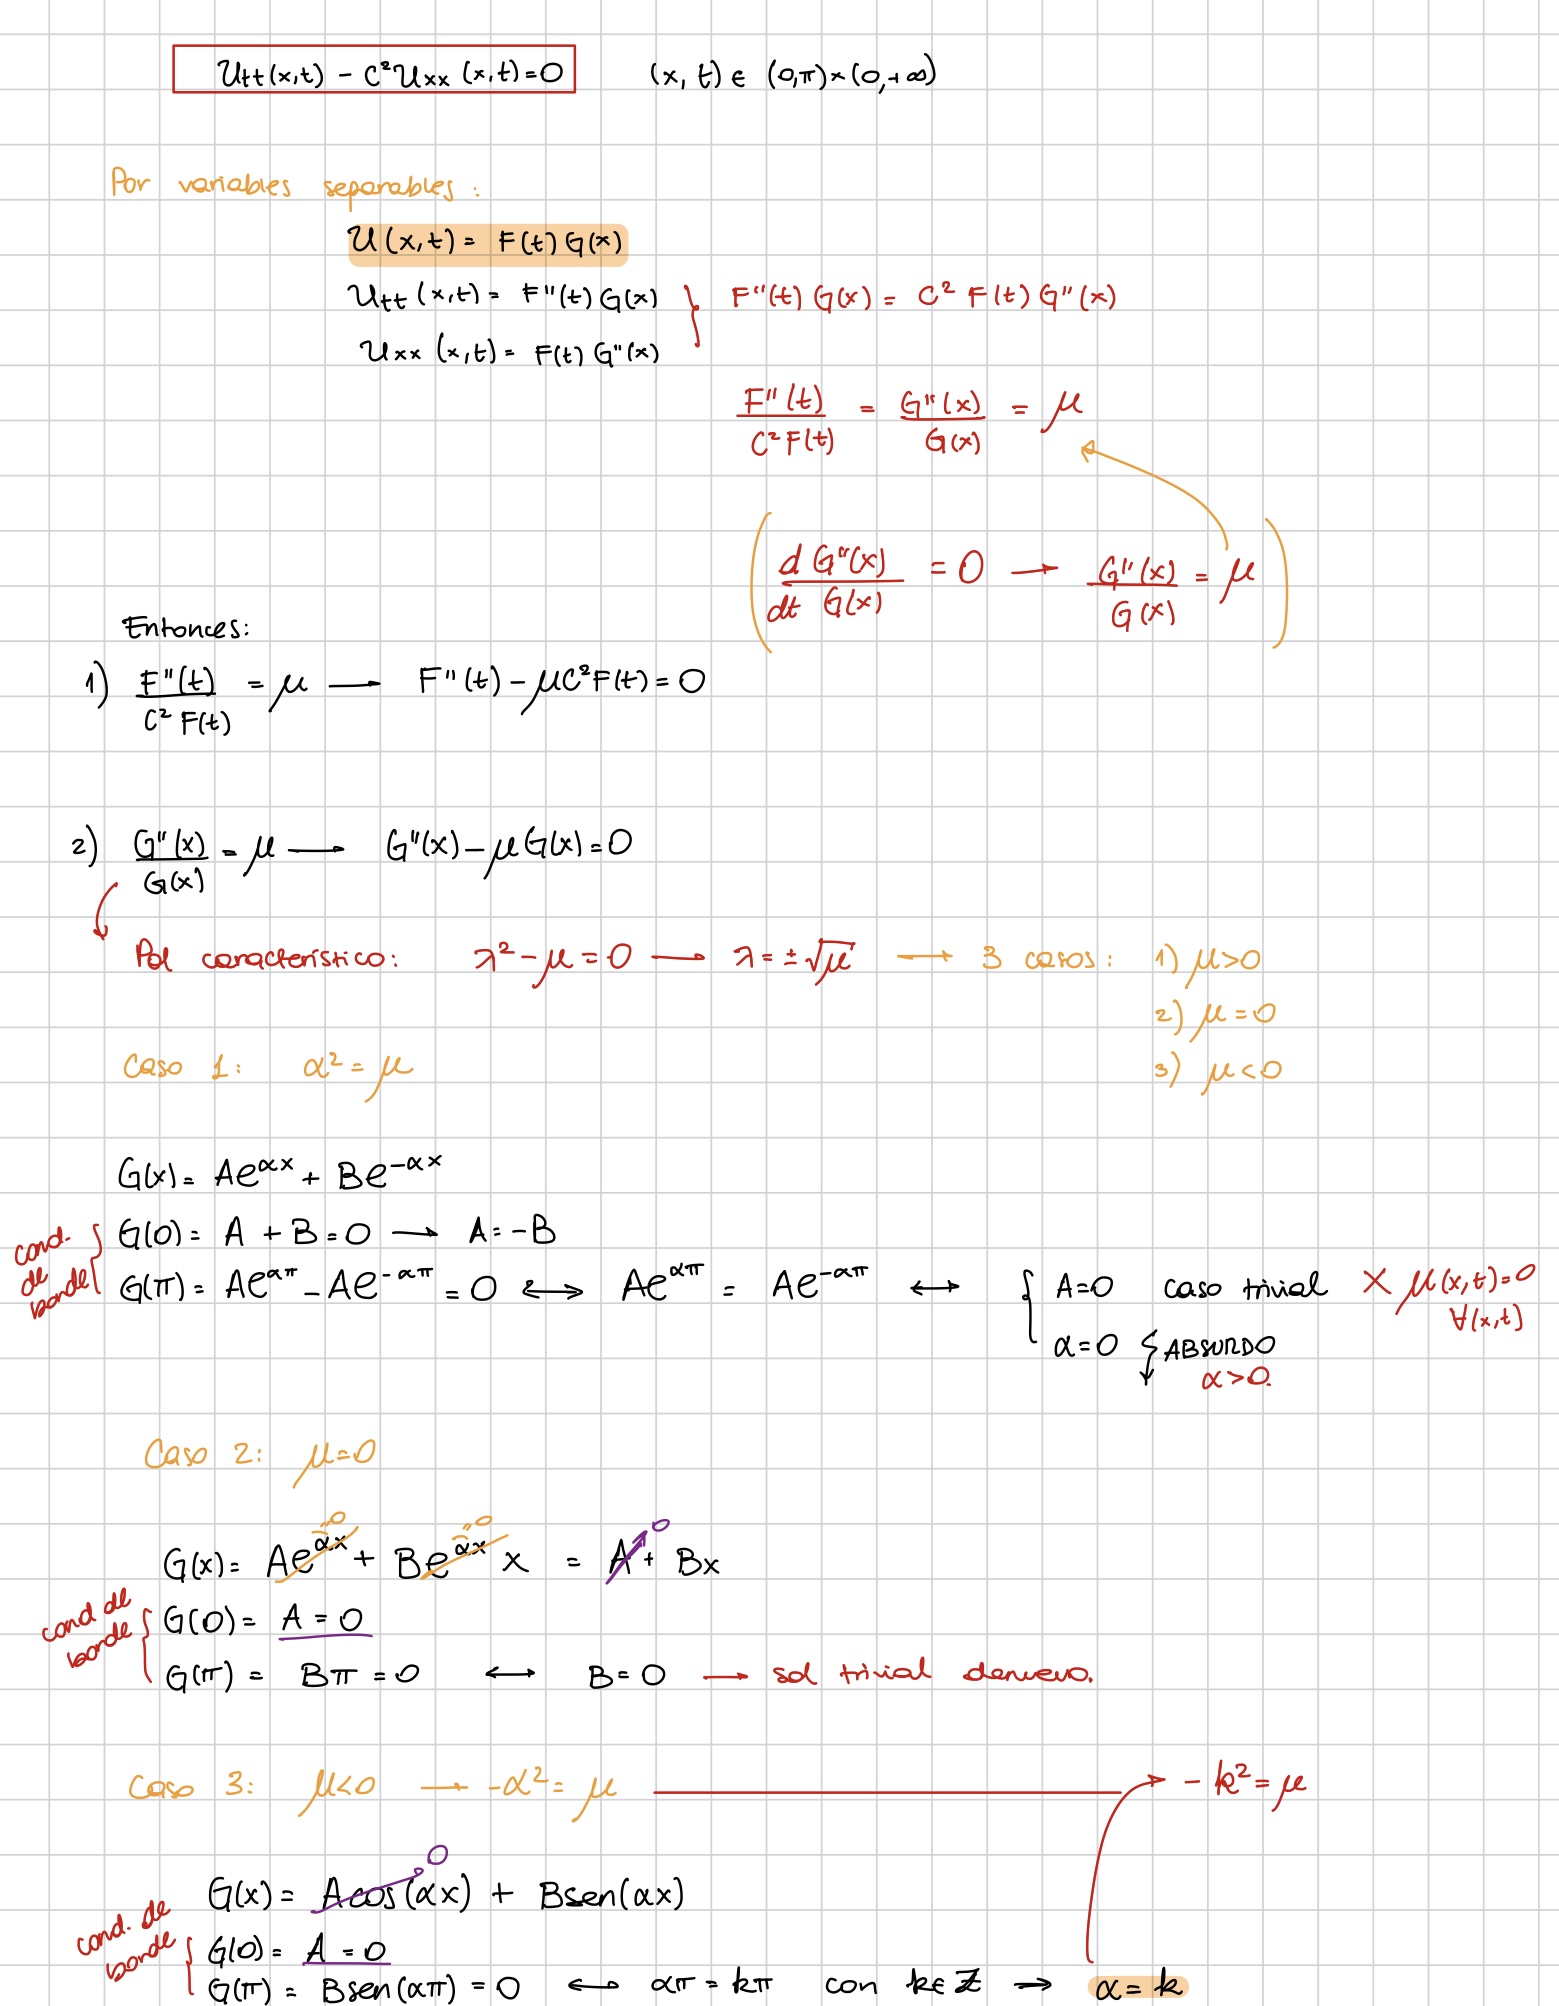 Utt(x,t) - C²Uxx (x,t)=0 (x, t) ∈ (0,π)×(0,+∞)
Por variables separables:
U(x,t) = F(t) G(x)
Utt (x,t) = F''(t) G(x) } F''(t) G(x) = C² F(t) G''(x)
Uxx (x,t) = F(t) G''(x)
F''(t)/C²F(t) = G''(x)/G(x) = μ
( d/dt G''(x)/G(x) = 0 → G''(x)/G(x) = μ )
Entonces:
1) F''(t)/C² F(t) = μ → F''(t) - μC²F(t) = 0
2) G''(x)/G(x) = μ → G''(x) - μG(x) = 0
Pol característico: λ² - μ = 0 → λ = ±√μ → 3 casos: 1) μ>0
2) μ = 0
3) μ<0
Caso 1: α² = μ
G(x) = Ae^αx + Be^-αx
cond. de borde { G(0) = A + B = 0 → A = -B
G(π) = Ae^απ - Ae^-απ = 0 ⟷ Ae^απ = Ae^-απ ⟷ { A=0 caso trivial X μ(x,t)=0 ∀(x,t)
α=0 ABSURDO
α>0.
Caso 2: μ=0
G(x) = Ae^αx + Be^αx x = A + Bx
=0 =0 0
cond de borde { G(0) = A = 0
G(π) = Bπ = 0 ⟷ B = 0 → sol trivial denuevo.
Caso 3: μ<0 → -α² = μ → - k² = μ
0
G(x) = Acos(αx) + Bsen(αx)
cond. de borde { G(0) = A = 0
G(π) = Bsen(απ) = 0 ⟷ απ = kπ con k∈ℤ → α = k